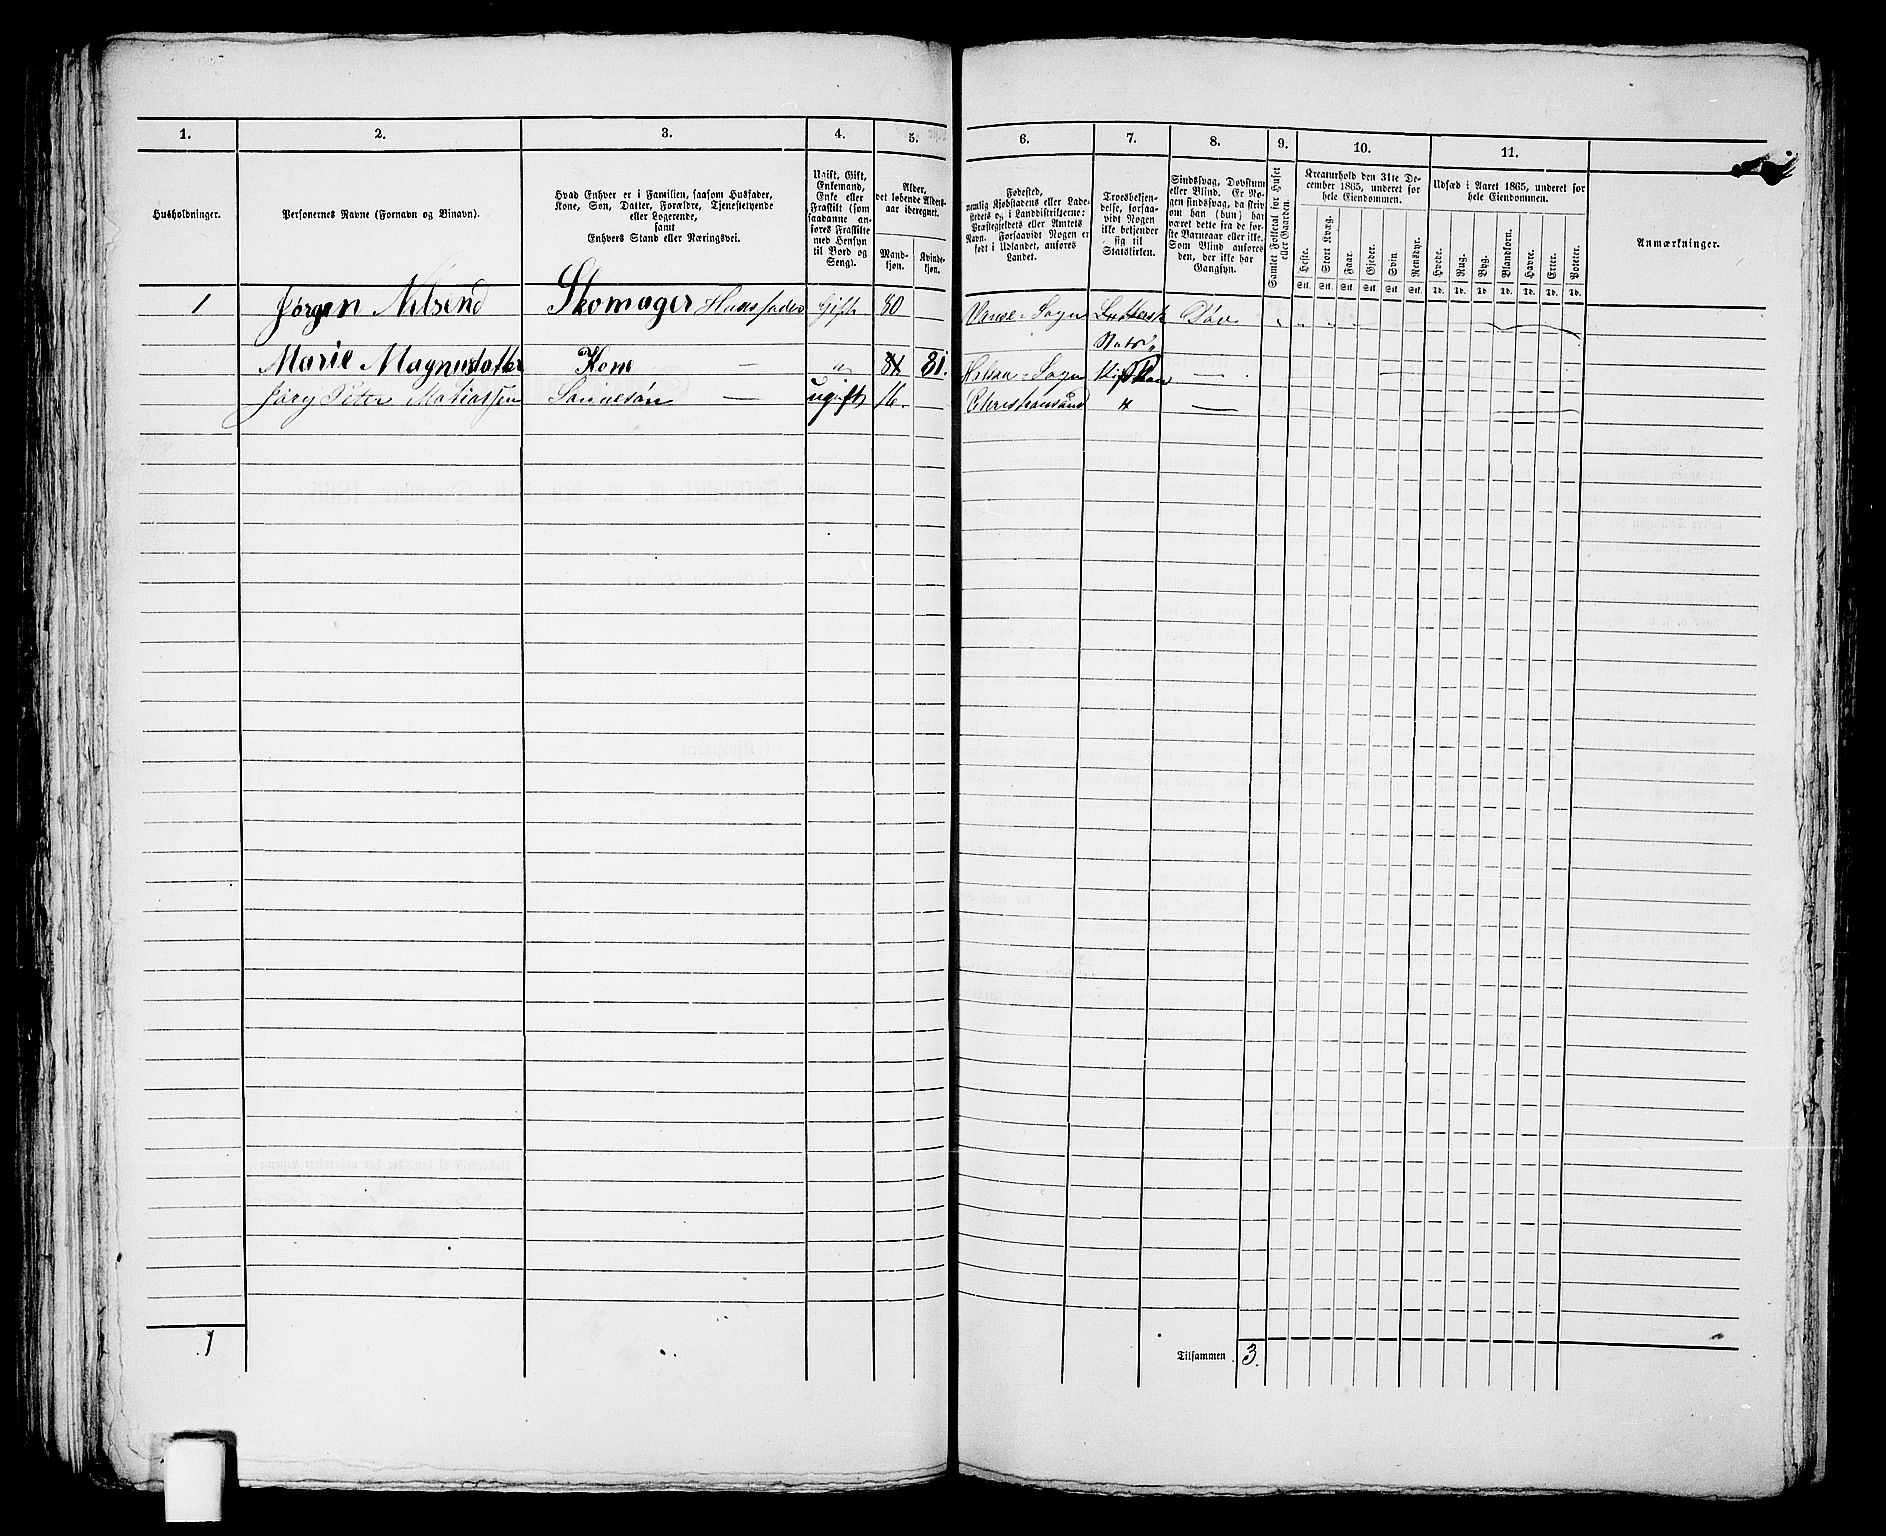 1. 2. 3. 4. 5. 6. 7. 8. 9. 10. 11.
Husholdninger.
Personernes Navne (Fornavn og Binavn).
Hvad Enhver er i Familien, saasom Husfader,
Kone, Søn, Datter, Forældre, Tjenestetyende
eller Logerende,
samt
Enhvers Stand eller Næringsvei.
Ugift, Gift,
Enkemand,
Enke eller
Fraskilt (som
saadanne an-
føres Fraskilte
med Hensyn
til Bord og
Seng).
Alder,
det løbende Alders-
aar iberegnet.
Mand-
kjøn.
Kvinde-
kjøn.
Fødested,
nemlig Kjøbstadens eller Lade-
stedets og i Landdistrikterne:
Præstegjeldets eller Amtets
Navn. Forsaavidt Nogen er
født i Udlandet, anføres
Landet.
Troesbekjen-
delse, forsaa-
vidt Nogen
ikke bekjender
sig til
Statskirken.
Sindssvag, Døvstum
eller Blind. Er No-
gen sindssvag, da skriv
om han (hun) har
været dette fra de før-
ste Barneaar eller ikke.
Som Blind anføres
den, der ikke har
Gangsyn.
Samlet Folketal for Huset
eller Gaarden.
Kreaturhold den 31te De-
cember 1865, underet for
hele Eiendommen.
Heste. Stort Kvæg. Faar. Gjeder. Svin. Rensdyr.
Stk. Stk. Stk. Stk. Stk. Stk.
Udsæd i Aaret 1865, underet for
hele Eiendommen.
Hvede. Rug. Byg. Blandkorn. Havre. Erter. Poteter.
Td. Td. Td. Td. Td. Td. Td.
Anmærkninger.
1 Jørgen Nilsend Skomager Huusfader Gift 80 Vanse Sogn Luttersk Døv
Stats
Marie Magnusdatter Kone — " 81. Sogn —
Jørg Peter Matiassen — ugift 16. Christiansand " —
1
Tilsammen 3.